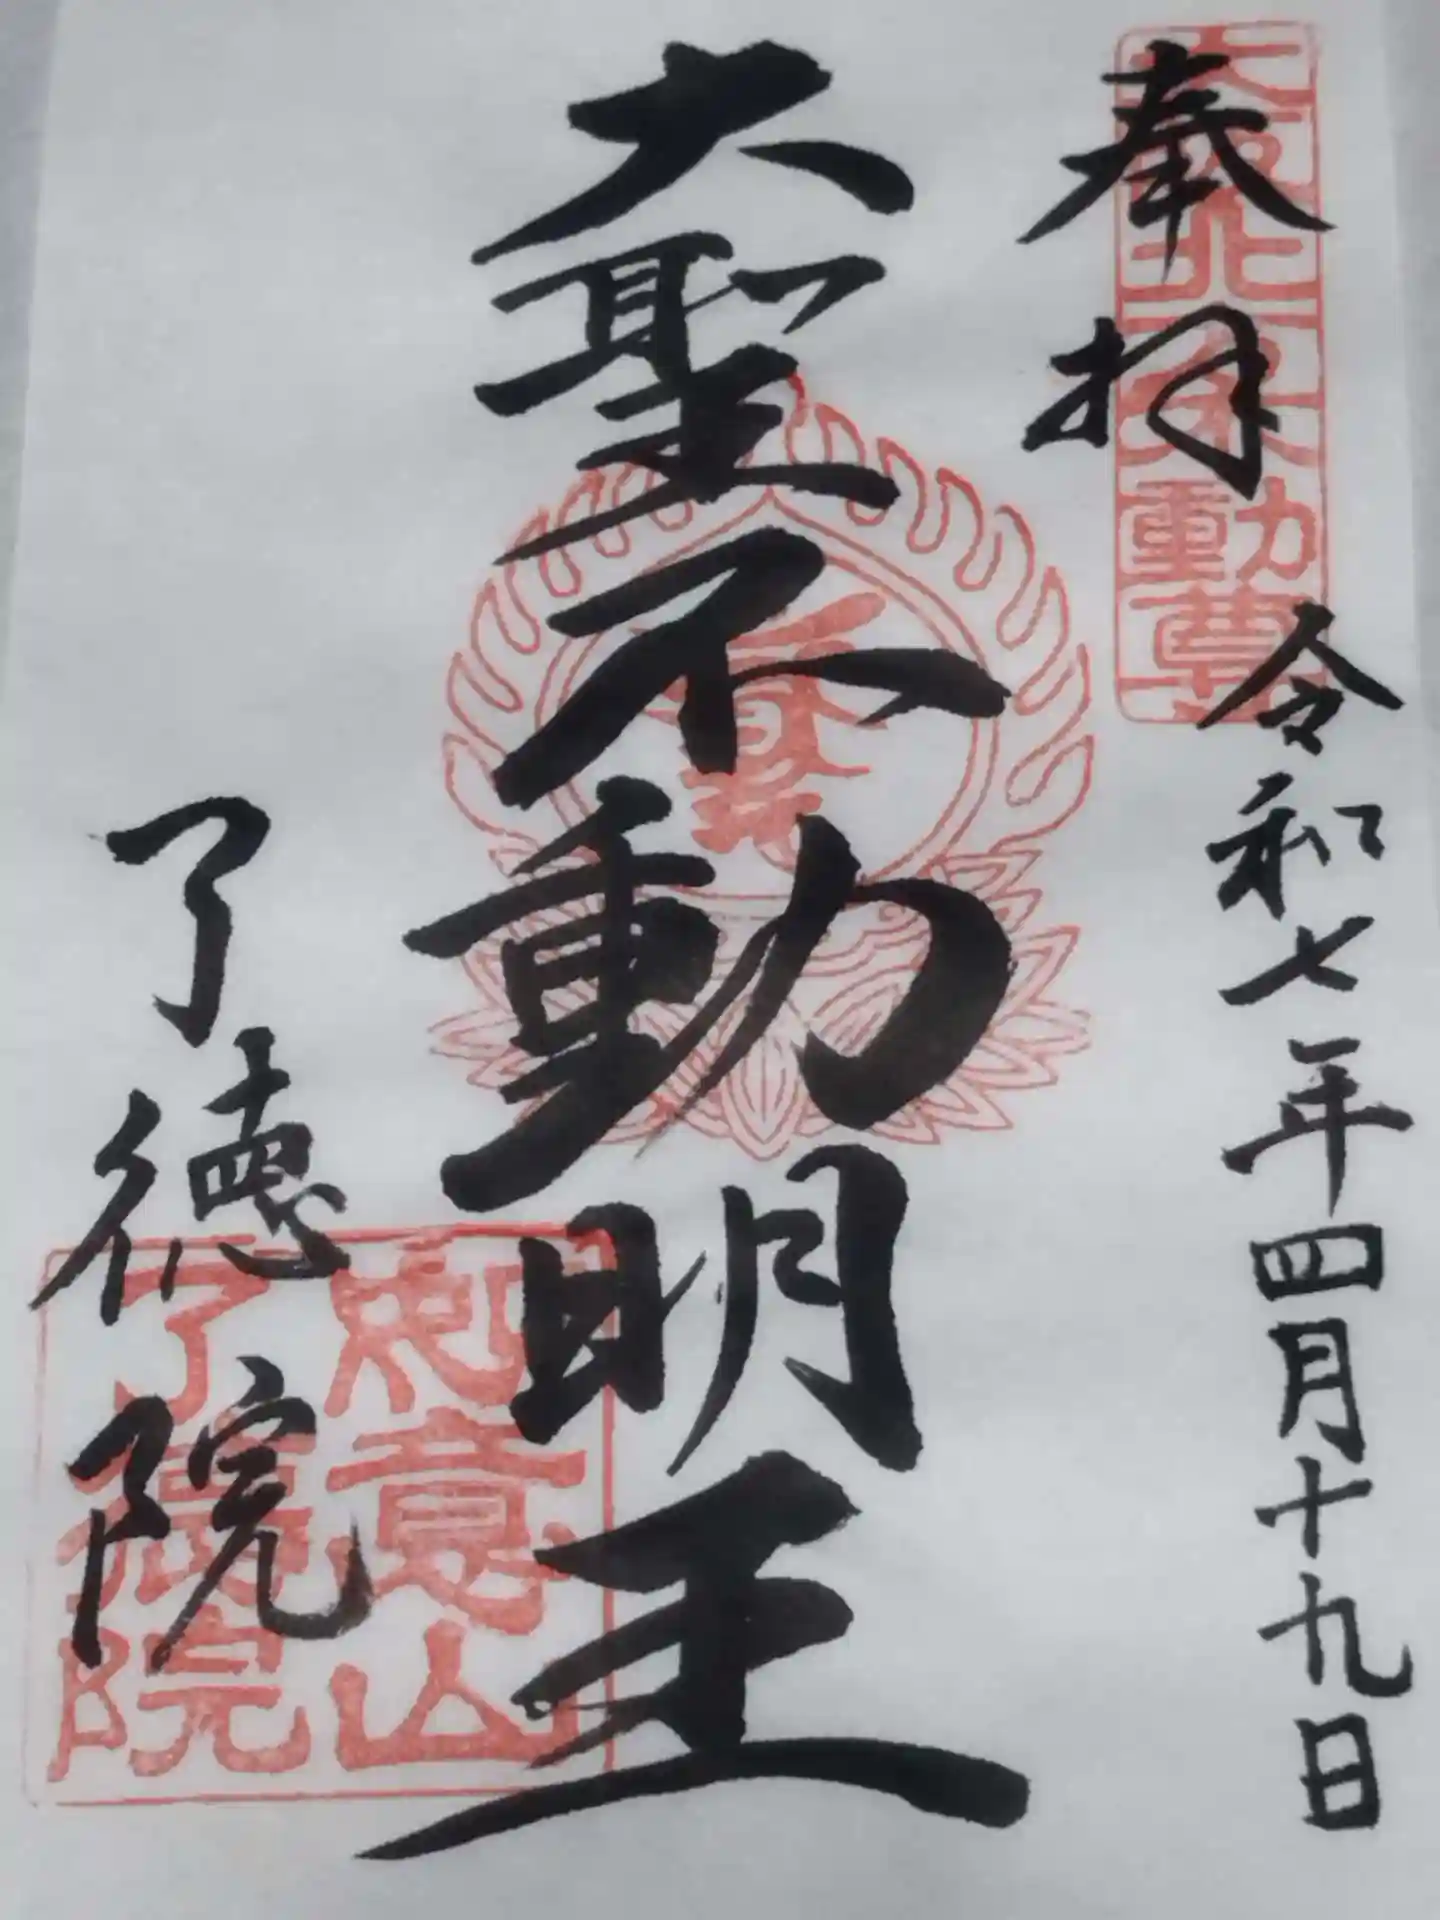 奉拝
大阪北不動尊
令和七年四月十九日
大聖不動明王
了德院
如意山
了德院